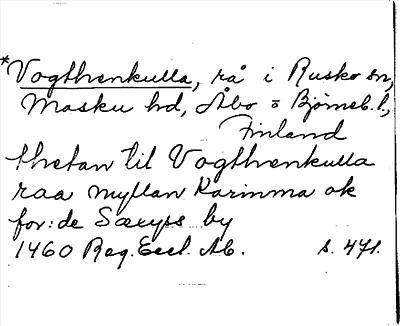 *Vogthenkulla, rå i Rusko sn,
Masku hd, Åbo o Björneb. l.,
Finland
thetan til Vogthenkulla
raa myllan Karinma ok
for: de Særyps by
1460 Reg. Eccl. Ab. s. 471.